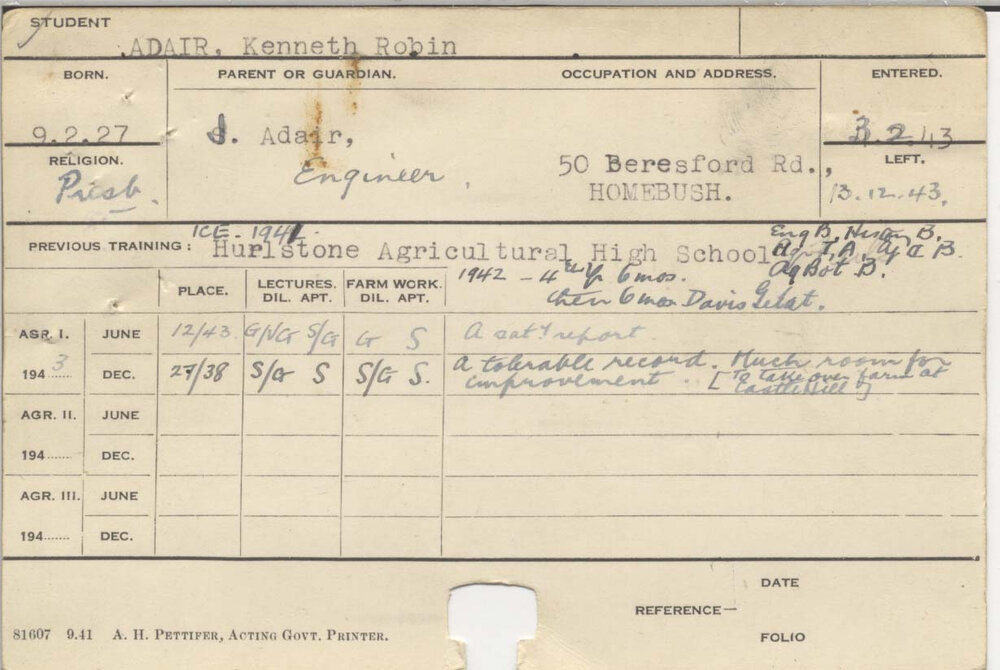 STUDENT
ADAIR, Kenneth Robin
BORN. PARENT OR GUARDIAN. OCCUPATION AND ADDRESS. ENTERED.
9.2.27 J. Adair, 3.2.43
RELIGION. Engineer. 50 Beresford Rd., LEFT.
Presb. HOMEBUSH. 13.12.43.
ICE - 1941 Eng B, B.
PREVIOUS TRAINING: Hurlstone Agricultural High School A, B.
1942 - 4th Yr 6 mos. Ag Bot B.
then 6 mos Davis Gelat.
PLACE. LECTURES. DIL. APT. FARM WORK. DIL. APT.
AGR. I. JUNE 12/43 G/NG S/G G S A sat. report.
1943 DEC. 27/38 S/G S S/G S. A tolerable record. Much room for
improvement.. [To take over farm at
Castle Hill]
AGR. II. JUNE
194...... DEC.
AGR. III. JUNE
194....... DEC.
DATE
REFERENCE—
FOLIO
81607 9.41 A. H. PETTIFER, ACTING GOVT. PRINTER.